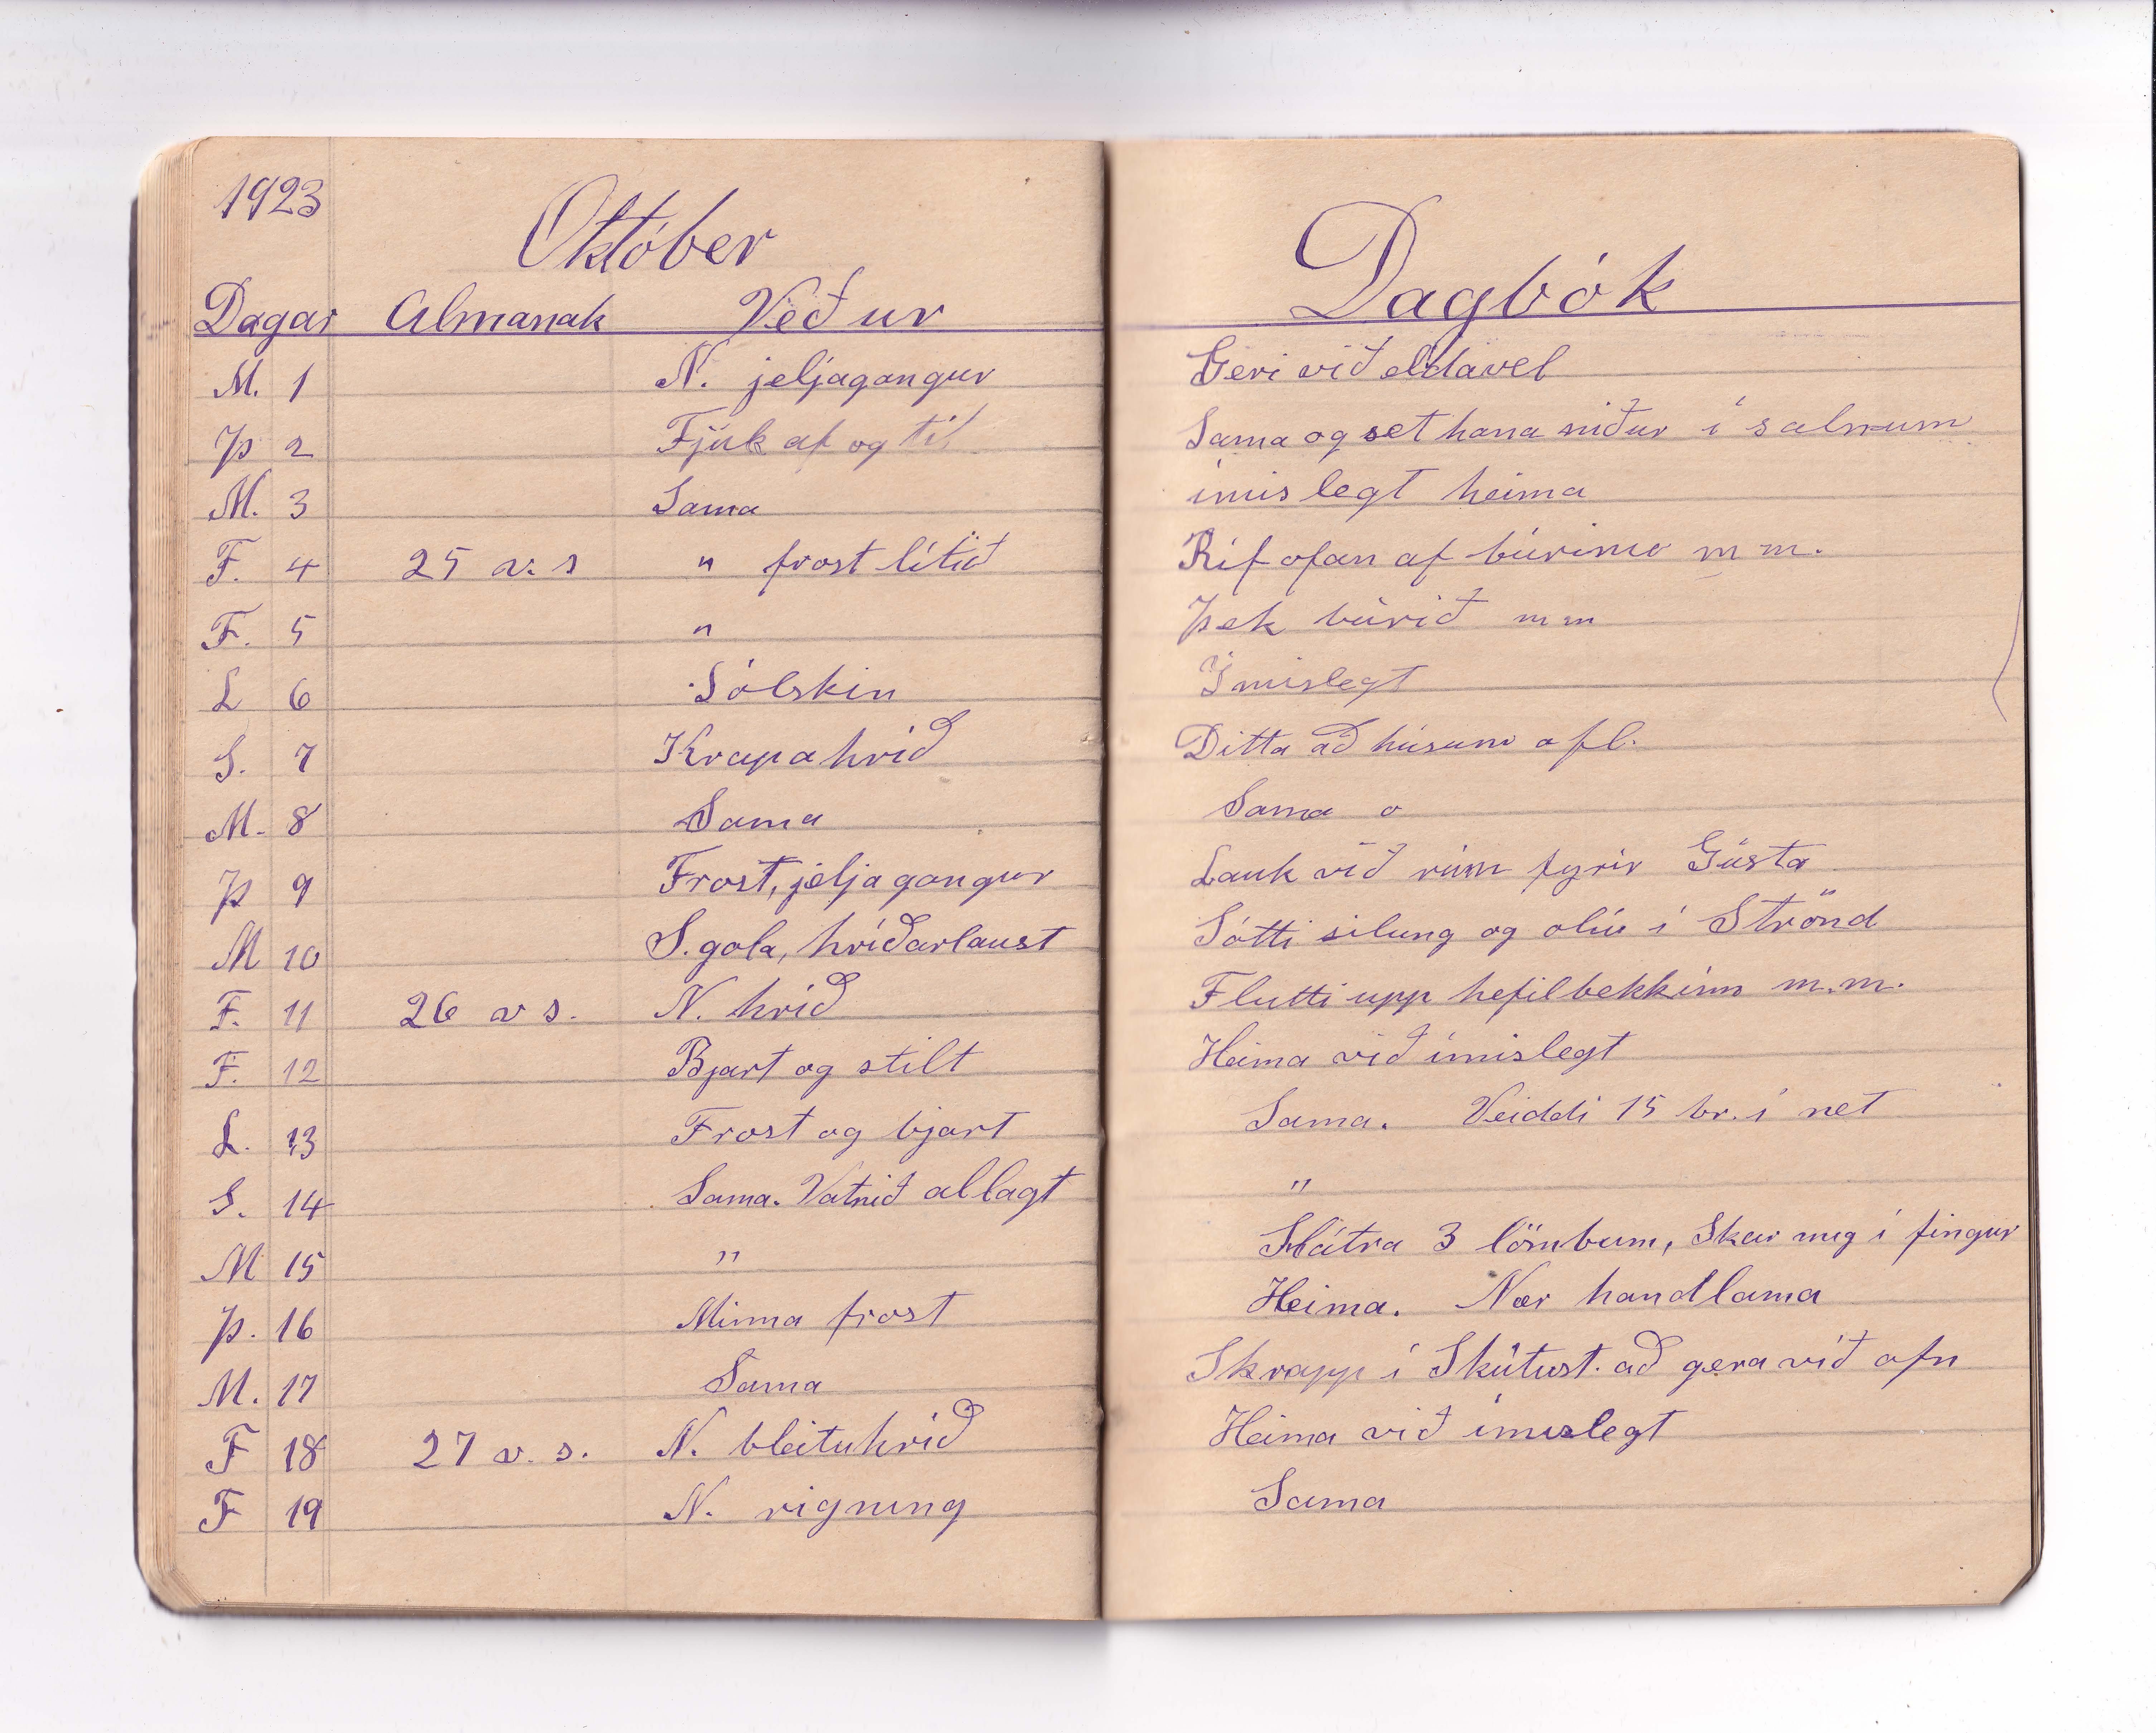 1923
Október
Dagar Almanak Veður
M. 1 N. jeljagangur
Þ 2 Fjúk af og til
M. 3 Sama
F. 4 25 v. s " frost lítið
F. 5 "
L 6 Sólskin
S. 7 Krapahríð
M. 8 Sama
Þ 9 Frost, jeljagangur
M 10 S. gola, hríðarlaust
F. 11 26 v s. N. hríð
F. 12 Bjart og stilt
L. 13 Frost og bjart
S. 14 Sama. Vatnið allagt
M 15 "
Þ. 16 Minna frost
M. 17 Sama
F 18 27 v. s. N. bleituhríð
F 19 N. rigning
Dagbók
Geri við eldavel
Sama og set hana niður í salnum
ímislegt heima
Ríf ofan af búrinu m m.
Þek búrið m m
Ímislegt
Ditta að húsum o fl.
Sama o
Lauk við rúm fyrir Gústa
Sótti silung og olíu í Strönd
Flutti upp hefilbekkinn m.m.
Heima við ímislegt
Sama. Veiddi 15 br. í net
"
Slátra 3 lömbum, Skar mig í fingur
Heima. Nær handlama
Skrapp í Skútust. að gera við ofn
Heima við ímislegt
Sama